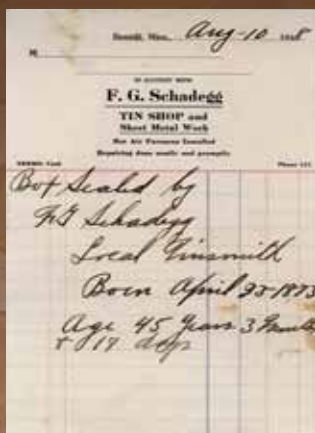 Minn., Aug-10 1918
M
IN ACCOUNT WITH
F. G. Schadegg
TIN SHOP and
Sheet Metal Work
Hot Air Furnaces Installed
Repairing done neatly and promptly
TERMS: Cash
Phone
Box Sealed by
F G Schadegg
Local Tinsmith
Born April 23-1873
Age 45 years 3 Months
& 17 days